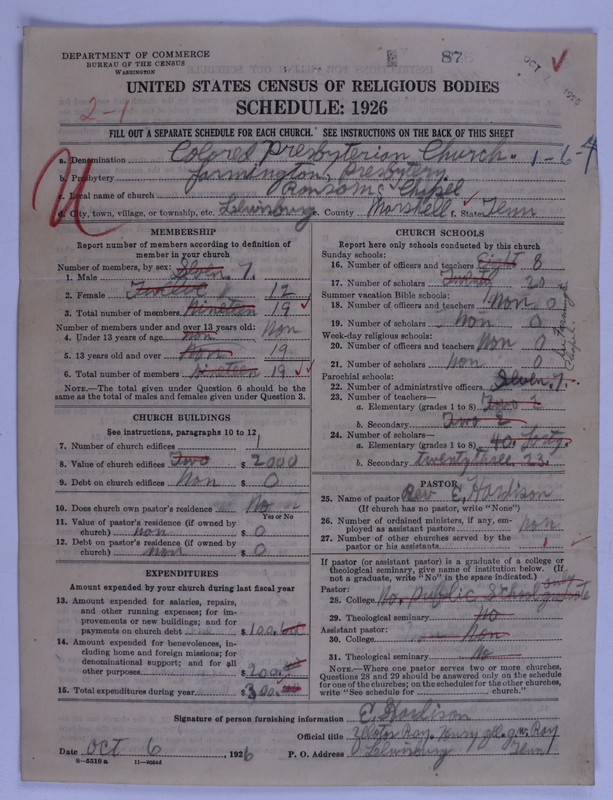 DEPARTMENT OF COMMERCE
BUREAU OF THE CENSUS
WASHINGTON
87
OCT
UNITED STATES CENSUS OF RELIGIOUS BODIES
SCHEDULE: 1926
2-1
FILL OUT A SEPARATE SCHEDULE FOR EACH CHURCH. SEE INSTRUCTIONS ON THE BACK OF THIS SHEET
a. Denomination Colored Presbyterion Church. 1-6-4
b. Presbytery Farmington, Presbytery
c. Local name of church Ransoms Chapel
d. City, town, village, or township, etc. Lewisburg e. County Marshell f. State Tenn
MEMBERSHIP
Report number of members according to definition of
member in your church
Number of members, by sex:
1. Male Seven 7.
2. Female Twelve 12
3. Total number of members Nineteen 19
Number of members under and over 13 years old: Non
4. Under 13 years of age Non
5. 13 years old and over Non 19
6. Total number of members Nineteen 19
NOTE.—The total given under Question 6 should be the
same as the total of males and females given under Question 3.
CHURCH BUILDINGS
See instructions, paragraphs 10 to 12
7. Number of church edifices 1
8. Value of church edifices Two $ 2000
9. Debt on church edifices Non $ 0
10. Does church own pastor's residence No
Yes or No
11. Value of pastor's residence (if owned by
church) non $ 0
12. Debt on pastor's residence (if owned by
church) non $ 0
EXPENDITURES
Amount expended by your church during last fiscal year
13. Amount expended for salaries, repairs,
and other running expenses; for im-
provements or new buildings; and for
payments on church debt $ 100.
14. Amount expended for benevolences, in-
cluding home and foreign missions; for
denominational support; and for all
other purposes $ 200
15. Total expenditures during year $ 300
CHURCH SCHOOLS
Report here only schools conducted by this church
Sunday schools:
16. Number of officers and teachers Eight 8
17. Number of scholars Twenty 20
Summer vacation Bible schools:
18. Number of officers and teachers Non 0
19. Number of scholars Non 0
Week-day religious schools:
20. Number of officers and teachers Non 0
21. Number of scholars Non 0
Parochial schools:
22. Number of administrative officers Seven 7
23. Number of teachers—
a. Elementary (grades 1 to 8) Two 2
b. Secondary Two 2
24. Number of scholars—
a. Elementary (grades 1 to 8) 40 forty
b. Secondary twenty three 23
PASTOR
25. Name of pastor Rev E. Hardison
(If church has no pastor, write "None")
26. Number of ordained ministers, if any, em-
ployed as assistant pastors non
27. Number of other churches served by the
pastor or his assistants 1
If pastor (or assistant pastor) is graduate of a college or
theological seminary, give name of institution below. (If
not a graduate, write "No" in the space indicated.)
Pastor:
28. College No. public School
29. Theological seminary No
Assistant pastor:
30. College Non
31. Theological seminary No
NOTE.—Where one pastor serves two or more churches,
Questions 28 and 29 should be answered only on the schedule
for one of the churches; on the schedule for the other churches,
write "See schedule for church."
Signature of person furnishing information E. Hardison
Official title
Date Oct 6, 1926 P. O. Address Lewisburg Tenn
8—5518a 11—9056d